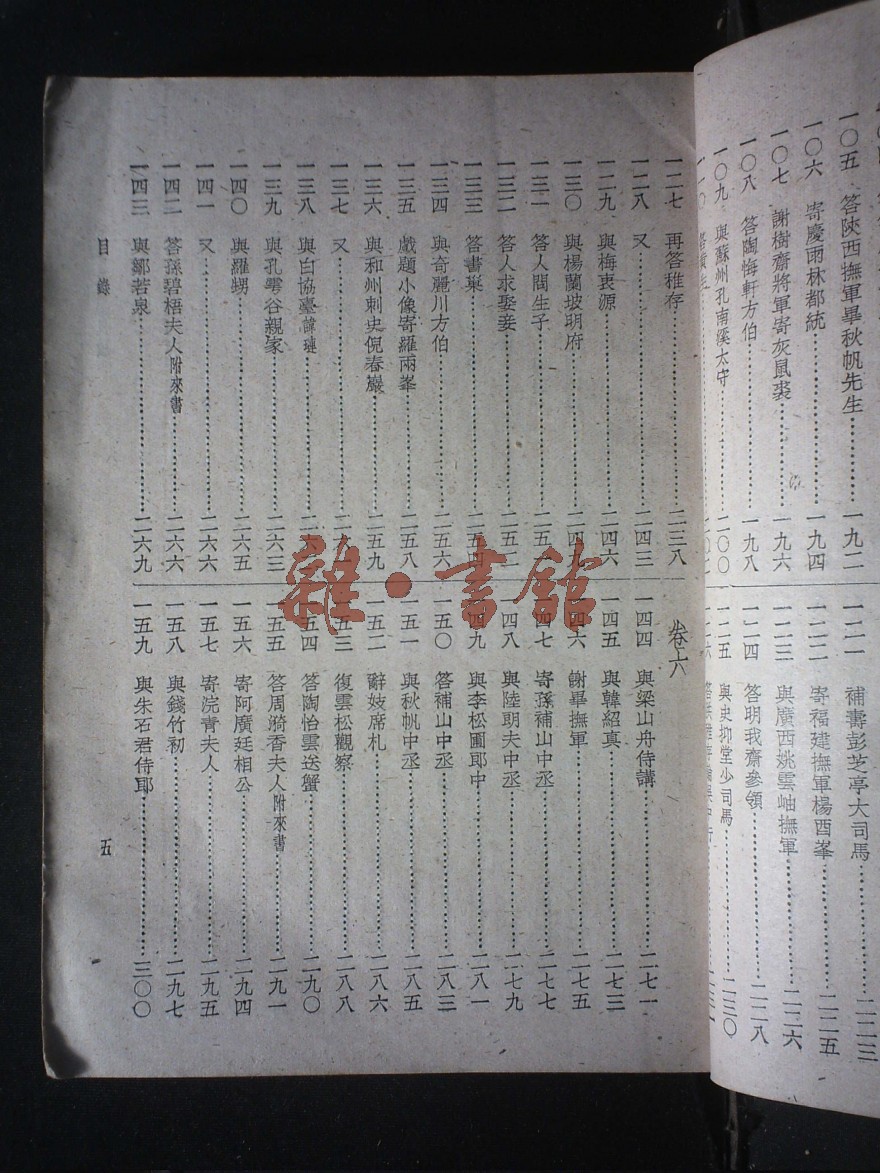 一〇五 答陝西撫軍畢秋帆先生 一九二
一〇六 寄慶雨林都統 一九四
一〇七 謝樹齋將軍寄灰鼠裘 一九六
一〇八 答陶悔軒方伯 一九八
一〇九 與蘇州孔南溪太守 二〇〇
補壽彭芝亭大司馬 二二三
一二二 寄福建撫軍楊酉峯 二二五
一二三 與廣西姚雲岫撫軍 二二六
一二四 答明我齋參領 二二八
一二五 與史抑堂少司馬 二三〇
一二七 再答稚存 二三八
一二八 又 二四三
一二九 與梅衷源 二四六
一三〇 與楊蘭坡明府 二四九
一三一 答人問生子
一三二 答人求娶妾
一三三 答書巢
一三四 與奇麗川方伯 二五六
一三五 戲題小像寄羅兩峯 二五八
一三六 與和州刺史倪春巖 二五九
一三七 又
一三八 與白協臺諱璉
一三九 與孔雩谷親家 二六三
一四〇 與羅甥 二六五
一四一 又 二六六
一四二 答孫碧梧夫人附來書 二六六
一四三 與鄒若泉 二六九
卷六
一四四 與梁山舟侍講 二七一
一四五 與韓紹真 二七三
一四六 謝畢撫軍 二七五
一四七 寄孫補山中丞 二七七
一四八 與陸朗夫中丞 二七九
一四九 與李松圃郎中 二八一
一五〇 答補山中丞 二八三
一五一 與秋帆中丞 二八五
一五二 辭妓席札 二八六
一五三 復雲松觀察 二八八
一五四 答陶怡雲送蟹 二九〇
一五五 答周漪香夫人附來書 二九一
一五六 寄阿廣廷相公 二九四
一五七 寄浣青夫人 二九五
一五八 與錢竹初 二九七
一五九 與朱石君侍郎 三〇〇
目錄
五
雜·書館